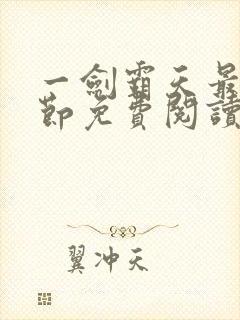 一劍霸天最
節免費閱讀
翼冲天